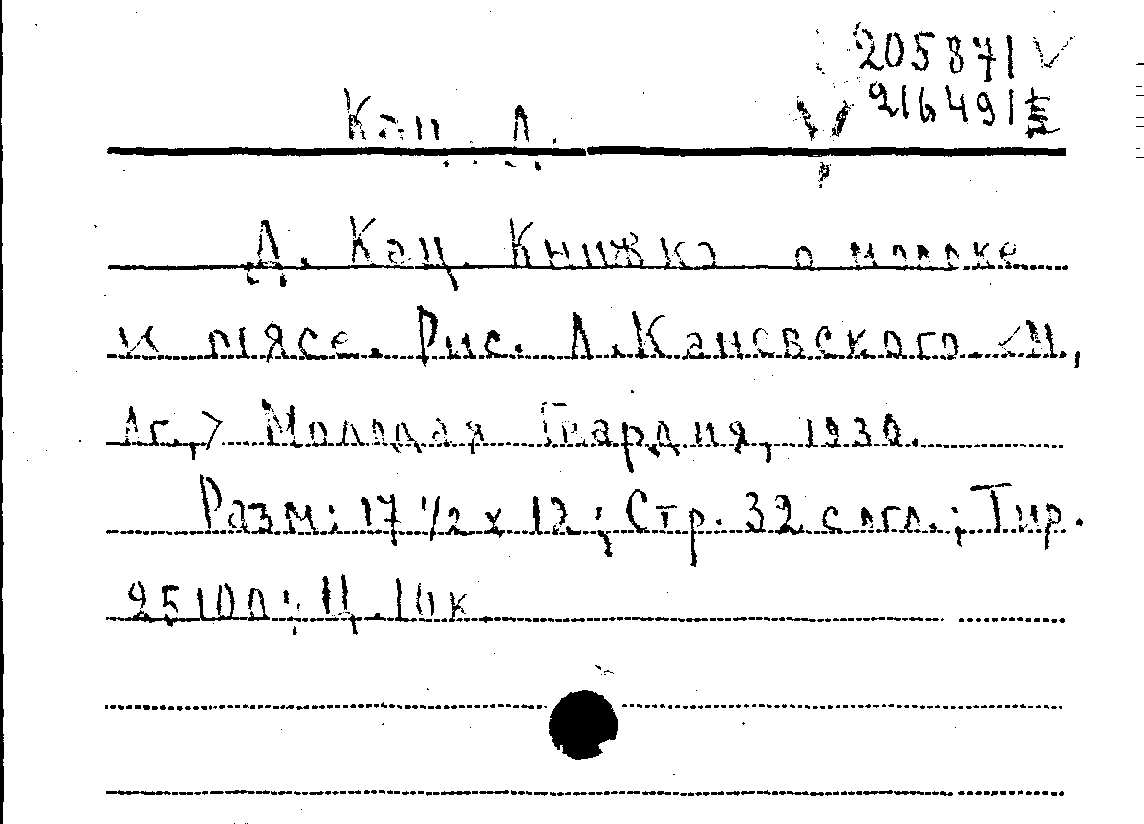 205871 V
216491
Кац Д.
Д. Кац. Книжка о молоке
и мясе. Рис. А. Каневского. <М.,
Лг.,> Молодая Гвардия, 1930.
Разм: 17 1/2 x 12; Стр. 32 с огл.; Тир.
25100; Ц. 10 к